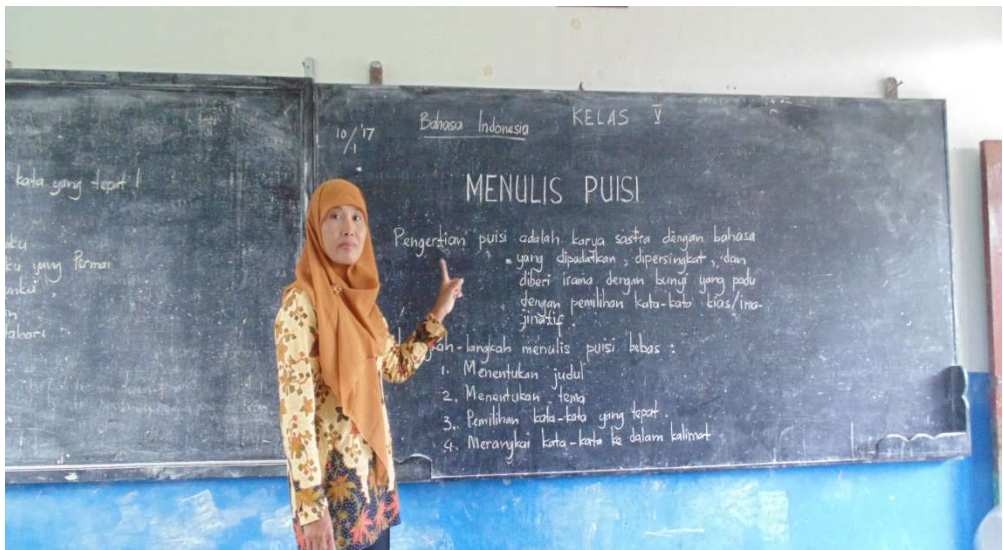 kata yang tepat !
ku yang Permai
10/1 '17
Bahasa Indonesia
KELAS V
MENULIS PUISI
Pengertian puisi adalah karya sastra dengan bahasa
yang dipadatkan, dipersingkat, dan
diberi irama dengan bunyi yang padu
dengan pemilihan kata-kata kias/ima-
jinatif.
-langkah menulis puisi bebas :
1. Menentukan judul
2. Menentukan tema
3. Pemilihan kata-kata yang tepat.
4. Merangkai kata-kata ke dalam kalimat